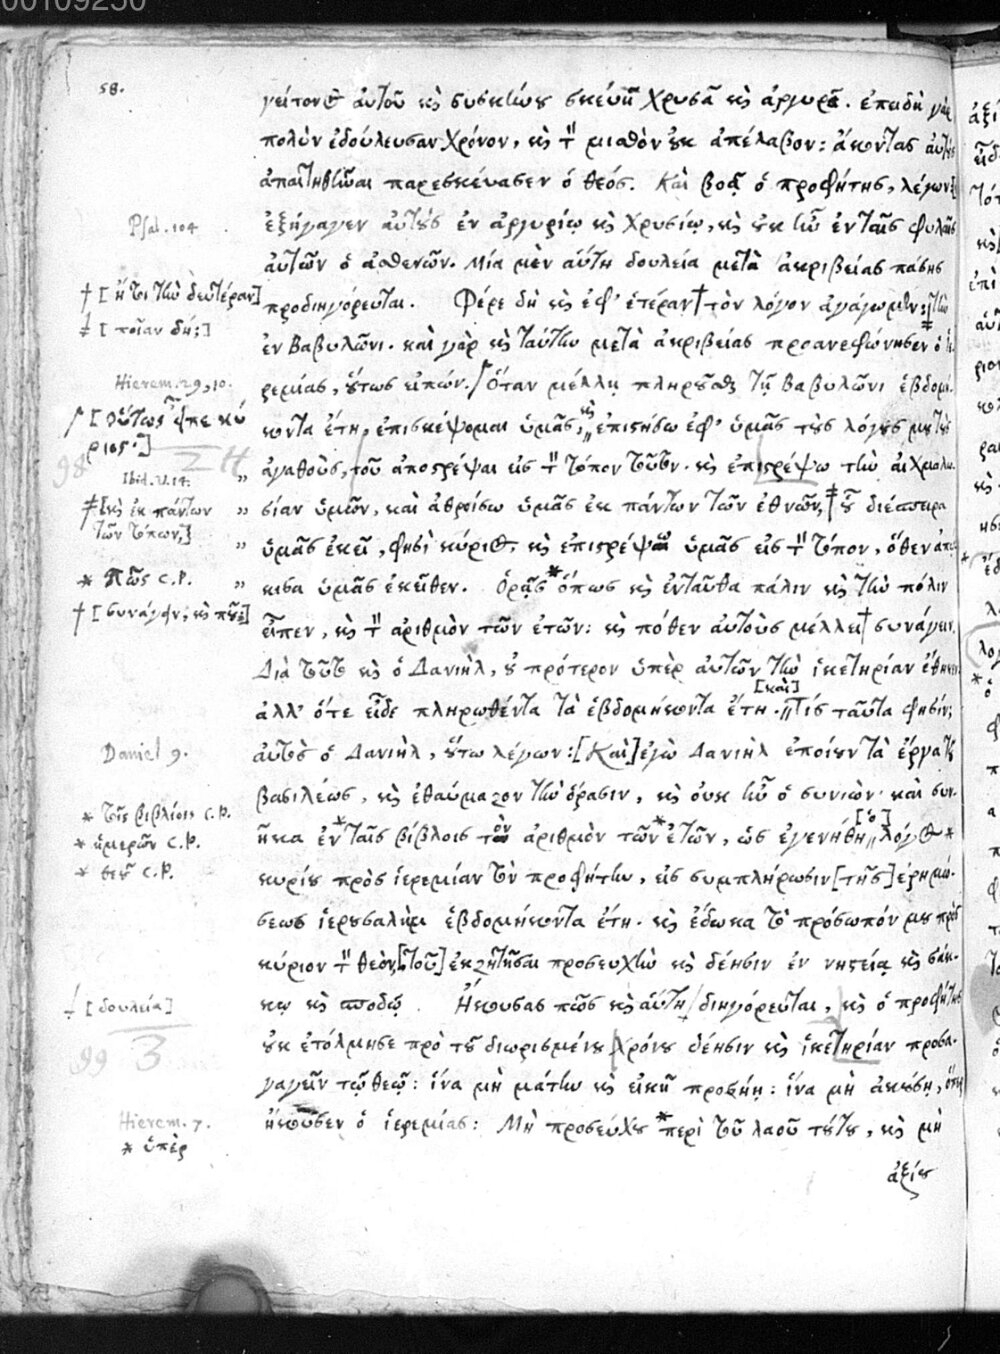 00109250
58.
γείτονος αὐτοῦ καὶ συσκήνου σκεύη χρυσᾶ καὶ ἀργυρᾶ. ἐπειδὴ γὰρ
πολὺν ἐδούλευσαν χρόνον, καὶ τὸν μισθὸν οὐκ ἀπέλαβον: ἄκοντας αὐτοὺς
ἀπαιτηθῆναι παρεσκεύασεν ὁ θεός. Καὶ βοᾷ ὁ προφήτης, λέγων:
Psal. 104 ἐξήγαγεν αὐτοὺς ἐν ἀργυρίῳ καὶ χρυσίῳ, καὶ οὐκ ἦν ἐν ταῖς φυλαῖς
αὐτῶν ὁ ἀσθενῶν. Μία μὲν αὕτη δουλεία μετὰ ἀκριβείας πάσης
† [ἤτοι τὴν δευτέραν] προδιηγόρευται. Φέρε δὴ καὶ ἐφ' ἑτέραν † τὸν λόγον ἀγάγωμεν: ‡ τὴν
‡ [ποίαν δή;] ἐν Βαβυλῶνι. καὶ γὰρ καὶ ταύτην μετὰ ἀκριβείας προανεφώνησεν ὁ Ἱε-
Hierem. 29, 10. ρεμίας, οὕτως εἰπών. / Ὅταν μέλλῃ πληροῦσθαι τῇ Βαβυλῶνι ἑβδομή-
/ [Οὕτως εἶπε κύ κοντα ἔτη, ἐπισκέψομαι ὑμᾶς, καὶ ἐπιστήσω ἐφ' ὑμᾶς τοὺς λόγους μου τοὺς
ριος·] 98 2H ἀγαθοὺς, τοῦ ἀποστρέψαι εἰς τὸν τόπον τοῦτον. καὶ ἐπιστρέψω τὴν αἰχμαλω-
Ibid. v. 14.
‡ [καὶ ἐκ πάντων σίαν ὑμῶν, καὶ ἀθροίσω ὑμᾶς ἐκ πάντων τῶν ἐθνῶν, ‡ οὗ διέσπειρα
τῶν τόπων,] ὑμᾶς ἐκεῖ, φησὶ κύριος, καὶ ἐπιστρέψω ὑμᾶς εἰς τὸν τόπον, ὅθεν ἀπῴ-
* Πῶς C.P. κισα ὑμᾶς ἐκεῖθεν. Ὁρᾷς * ὅπως καὶ ἐνταῦθα πάλιν καὶ τὴν πόλιν
† [συνάγειν; καὶ ποῦ;] εἶπεν, καὶ τὸν ἀριθμὸν τῶν ἐτῶν: καὶ πόθεν αὐτοὺς μέλλει † συνάγειν.
Διὰ τοῦτο καὶ ὁ Δανιὴλ, οὐ πρότερον ὑπὲρ αὐτῶν τὴν ἱκετηρίαν ἔθηκεν
[καὶ]
ἀλλ' ὅτε εἶδε πληρωθέντα τὰ ἑβδομήκοντα ἔτη. Τίς ταῦτα φησίν;
Daniel 9. αὐτὸς ὁ Δανιὴλ, οὕτω λέγων: [Καὶ] ἐγὼ Δανιὴλ ἐποίουν τὰ ἔργα τοῦ
βασιλέως, καὶ ἐθαύμαζον τὴν ὅρασιν, καὶ οὐκ ἦν ὁ συνιών· καὶ συν-
* τοῖς βιβλίοις C.P. [ὁ]
* ἡμερῶν C.P. ῆκα ἐν * ταῖς βίβλοις τὸν ἀριθμὸν τῶν * ἐτῶν, ὡς ἐγενήθη λόγος *
* θεοῦ C.P. κυρίου πρὸς Ἱερεμίαν τὸν προφήτην, εἰς συμπλήρωσιν [τῆς] ἐρημώ-
σεως Ἱερουσαλὴμ ἑβδομήκοντα ἔτη. καὶ ἔδωκα τὸ πρόσωπόν μου πρὸς
κύριον τὸν θεὸν, [τοῦ] ἐκζητῆσαι προσευχὴν καὶ δέησιν ἐν νηστείᾳ καὶ σάκ-
⸓ [δουλεία] κῳ καὶ σποδῷ. Ἤκουσας πῶς καὶ αὕτη / διηγόρευται, καὶ ὁ προφήτης
99 3 οὐκ ἐτόλμησε πρὸ τοῦ διωρισμένου χρόνου δέησιν καὶ ἱκετηρίαν προσα-
γαγεῖν τῷ θεῷ: ἵνα μὴ μάτην καὶ εἰκῆ προσίῃ: ἵνα μὴ ἀκούσῃ, ὅπερ
Hierem. 7. ἤκουσεν ὁ Ἱερεμίας: Μὴ προσεύχου * περὶ τοῦ λαοῦ τούτου, καὶ μὴ
* ὑπὲρ
ἀξίου